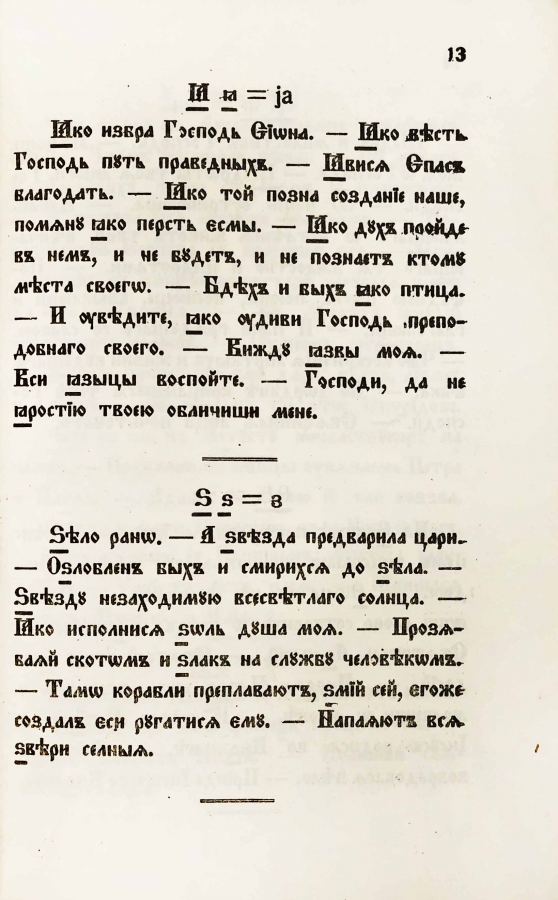 13
Ꙗ ꙗ = ја
Ꙗко избра Господь Сіѡна. — Ꙗко вѣсть
Господь пꙋть праведныхъ. — Ꙗвисѧ Спасъ
благодать. — Ꙗко той позна созданіе наше,
помѧнꙋ ꙗко персть есмы. — Ꙗко дꙋхъ пройде
въ немъ, и не бꙋдетъ, и не познаетъ ктомꙋ
мѣста своегѡ. — Бдѣхъ и быхъ ꙗко птица.
— И ѹвѣдите, ꙗко ѹдиви Господь препо-
добнаго своего. — Виждꙋ ꙗзвы моѧ. —
Вси ꙗзыцы воспойте. — Господи, да не
ꙗростію твоею обличиши мене.
Ѕ ѕ = з
Ѕѣло ранѡ. — А ѕвѣзда предварила цари.
— Оѕлобленъ быхъ и смирихсѧ до ѕѣла. —
Ѕвѣздꙋ незаходимꙋю всесвѣтлаго солнца. —
Ꙗко исполнисѧ ѕѡлъ дꙋша моѧ. — Прозѧ-
баѧй скотѡмъ и ѕлакъ на слꙋжбꙋ человѣкѡмъ.
— Тамѡ корабли преплаваютъ, ѕмій сей, егоже
создалъ еси рꙋгатисѧ емꙋ. — Напаѧютъ всѧ
ѕвѣри селныѧ.